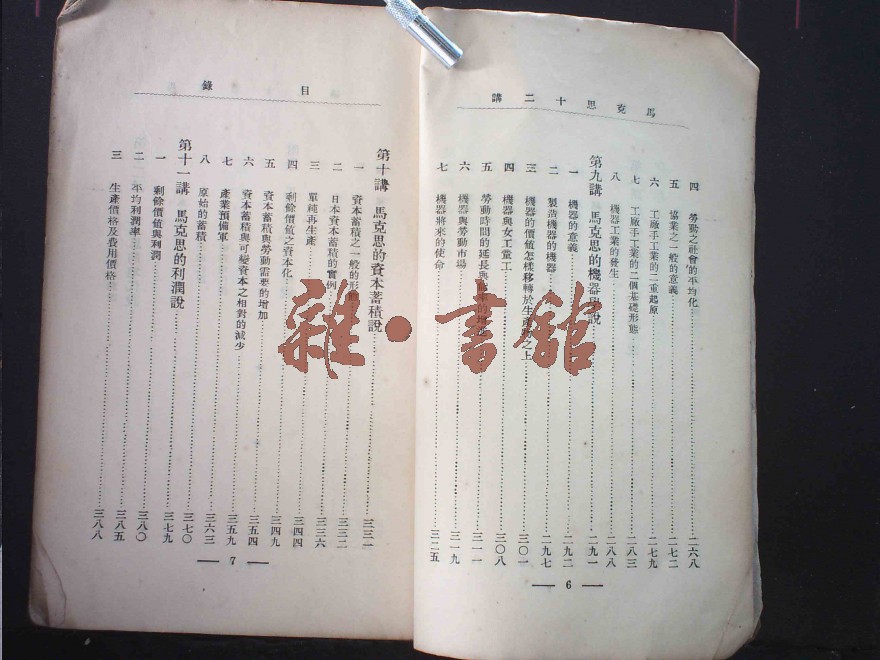 馬克思十二講
四 勞動之社會的平均化……二六八
五 協業之一般的意義……二七二
六 工廠手工業的二重起原……二七九
七 工廠手工業的二個基礎形態……二八三
八 機器工業的發生……二八八
第九講 馬克思的機器學說……二九一
一 機器的意義……二九二
二 製造機器的機器……二九七
三 機器的價值怎樣移轉於生產物之上……三〇一
四 機器與女工童工……三〇八
五 勞動時間的延長與……三一一
六 機器與勞動市場……三一九
七 機器將來的使命……三二五
6
目錄
第十講 馬克思的資本蓄積說……三三一
一 資本蓄積之一般的形態……三三一
二 日本資本蓄積的實例……三三二
三 單純再生產……三三六
四 剩餘價值之資本化……三四四
五 資本蓄積與勞動需要的增加……三四九
六 資本蓄積與可變資本之相對的減少……三五四
七 產業預備軍……三五九
八 原始的蓄積……三六三
第十一講 馬克思的利潤說……三七〇
一 剩餘價值與利潤……三七九
二 平均利潤率……三八〇
三 生產價格及費用價格……三八五
三八八
7
雜·書館